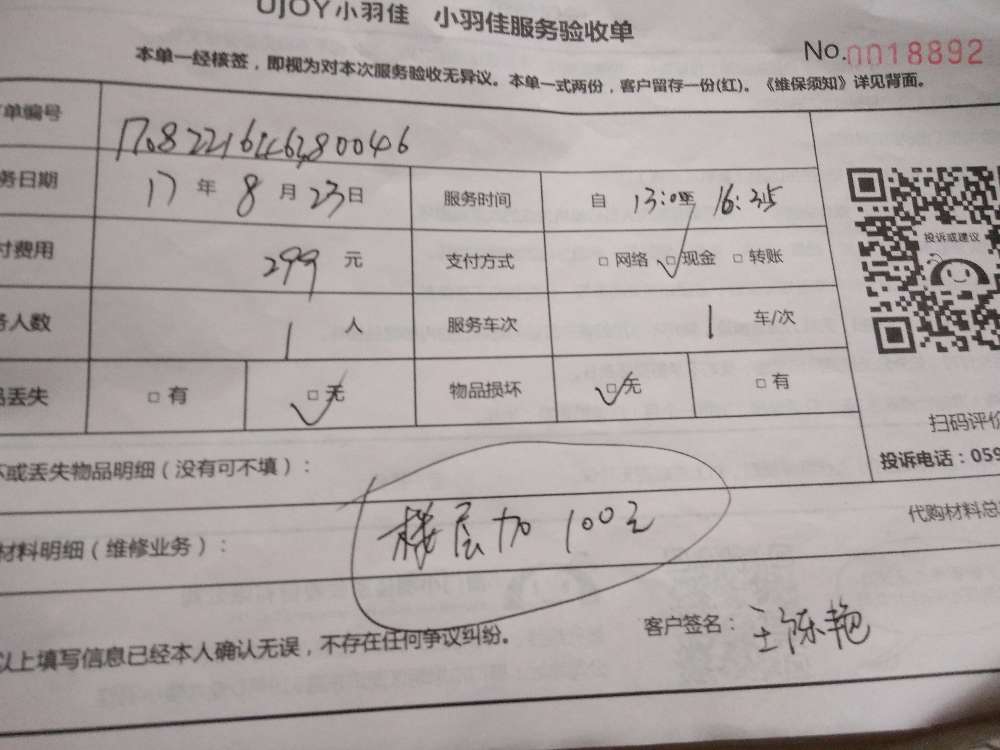 UJOY小羽佳 小羽佳服务验收单
No.0018892
本单一经核签，即视为对本次服务验收无异议。本单一式两份，客户留存一份(红)。《维保须知》详见背面。
单编号
务日期 17 年 8 月 23 日 服务时间 自 13:00 至 16:35
付费用 299 元 支付方式 □ 网络 □ 现金 □ 转账
务人数 1 人 服务车次 1 车/次
品丢失 □ 有 □ 无 物品损坏 □ 无 □ 有
投诉或建议
扫码评价
投诉电话：059
坏或丢失物品明细（没有可不填）：
楼层加100元
材料明细（维修业务）：
代购材料总
以上填写信息已经本人确认无误，不存在任何争议纠纷。
客户签名：王陈艳